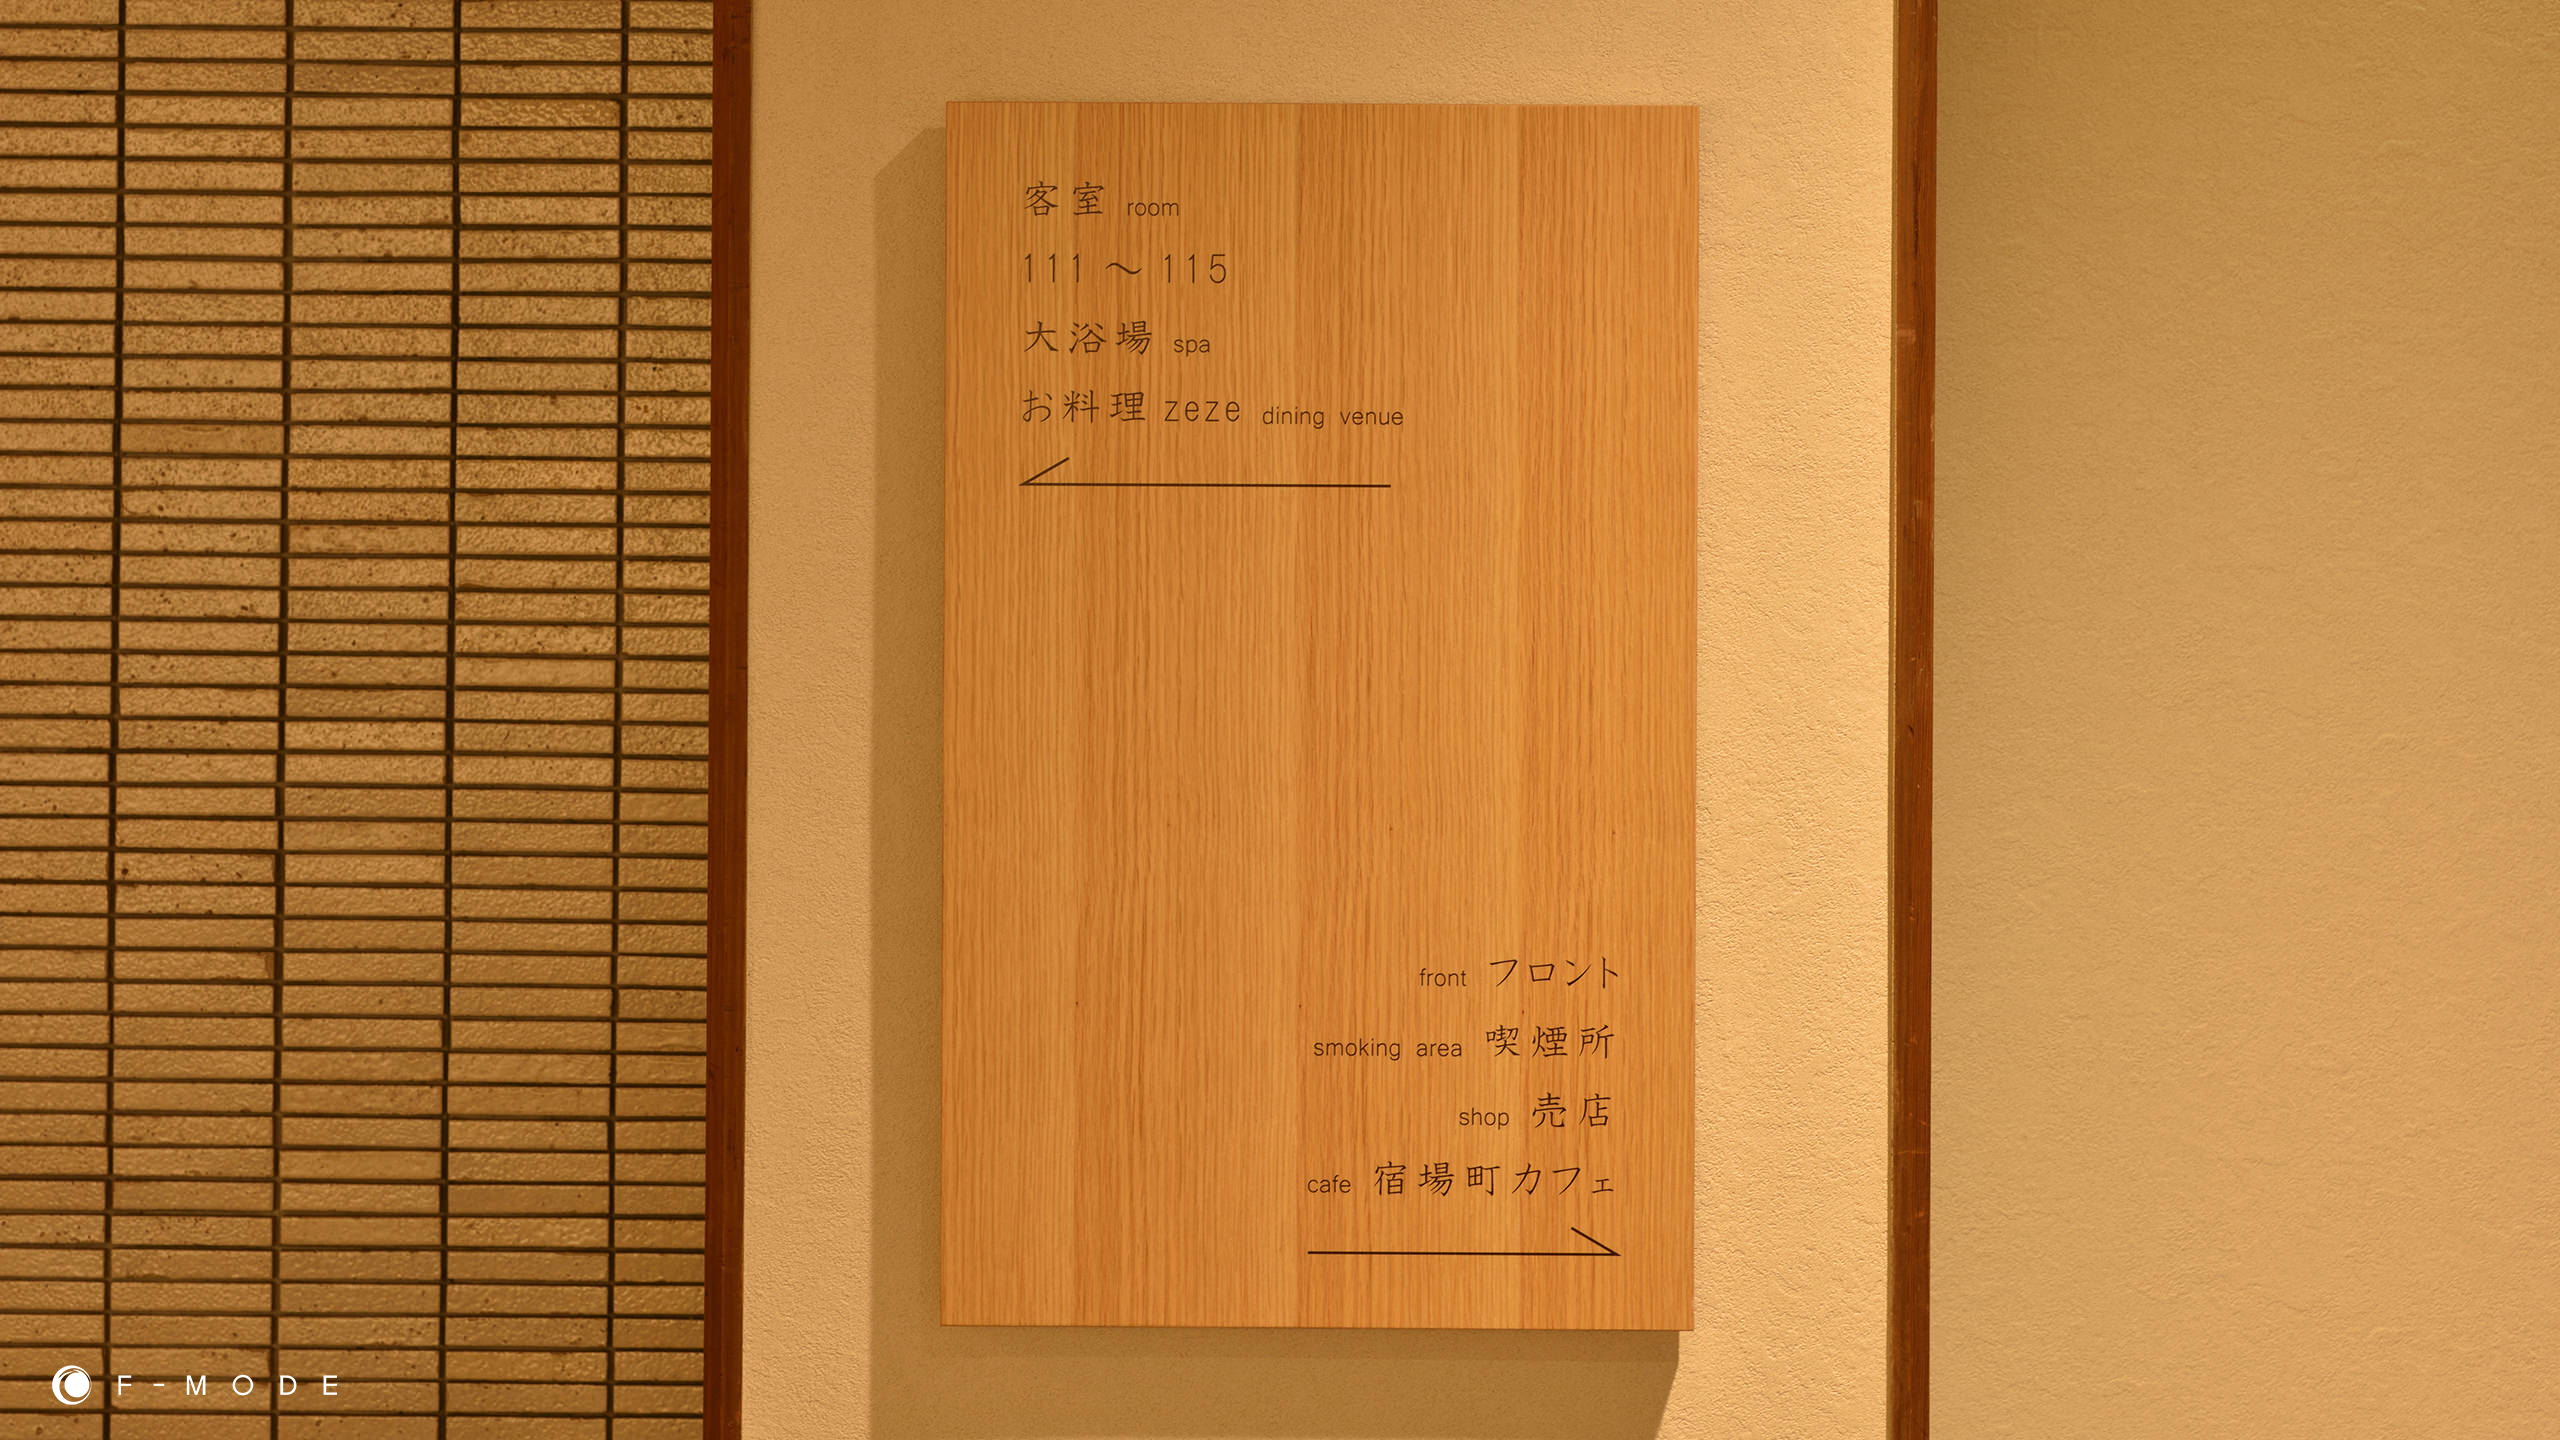 客室 room
111 〜 115
大浴場 spa
お料理 zeze dining venue
front フロント
smoking area 喫煙所
shop 売店
cafe 宿場町カフェ
F-MODE